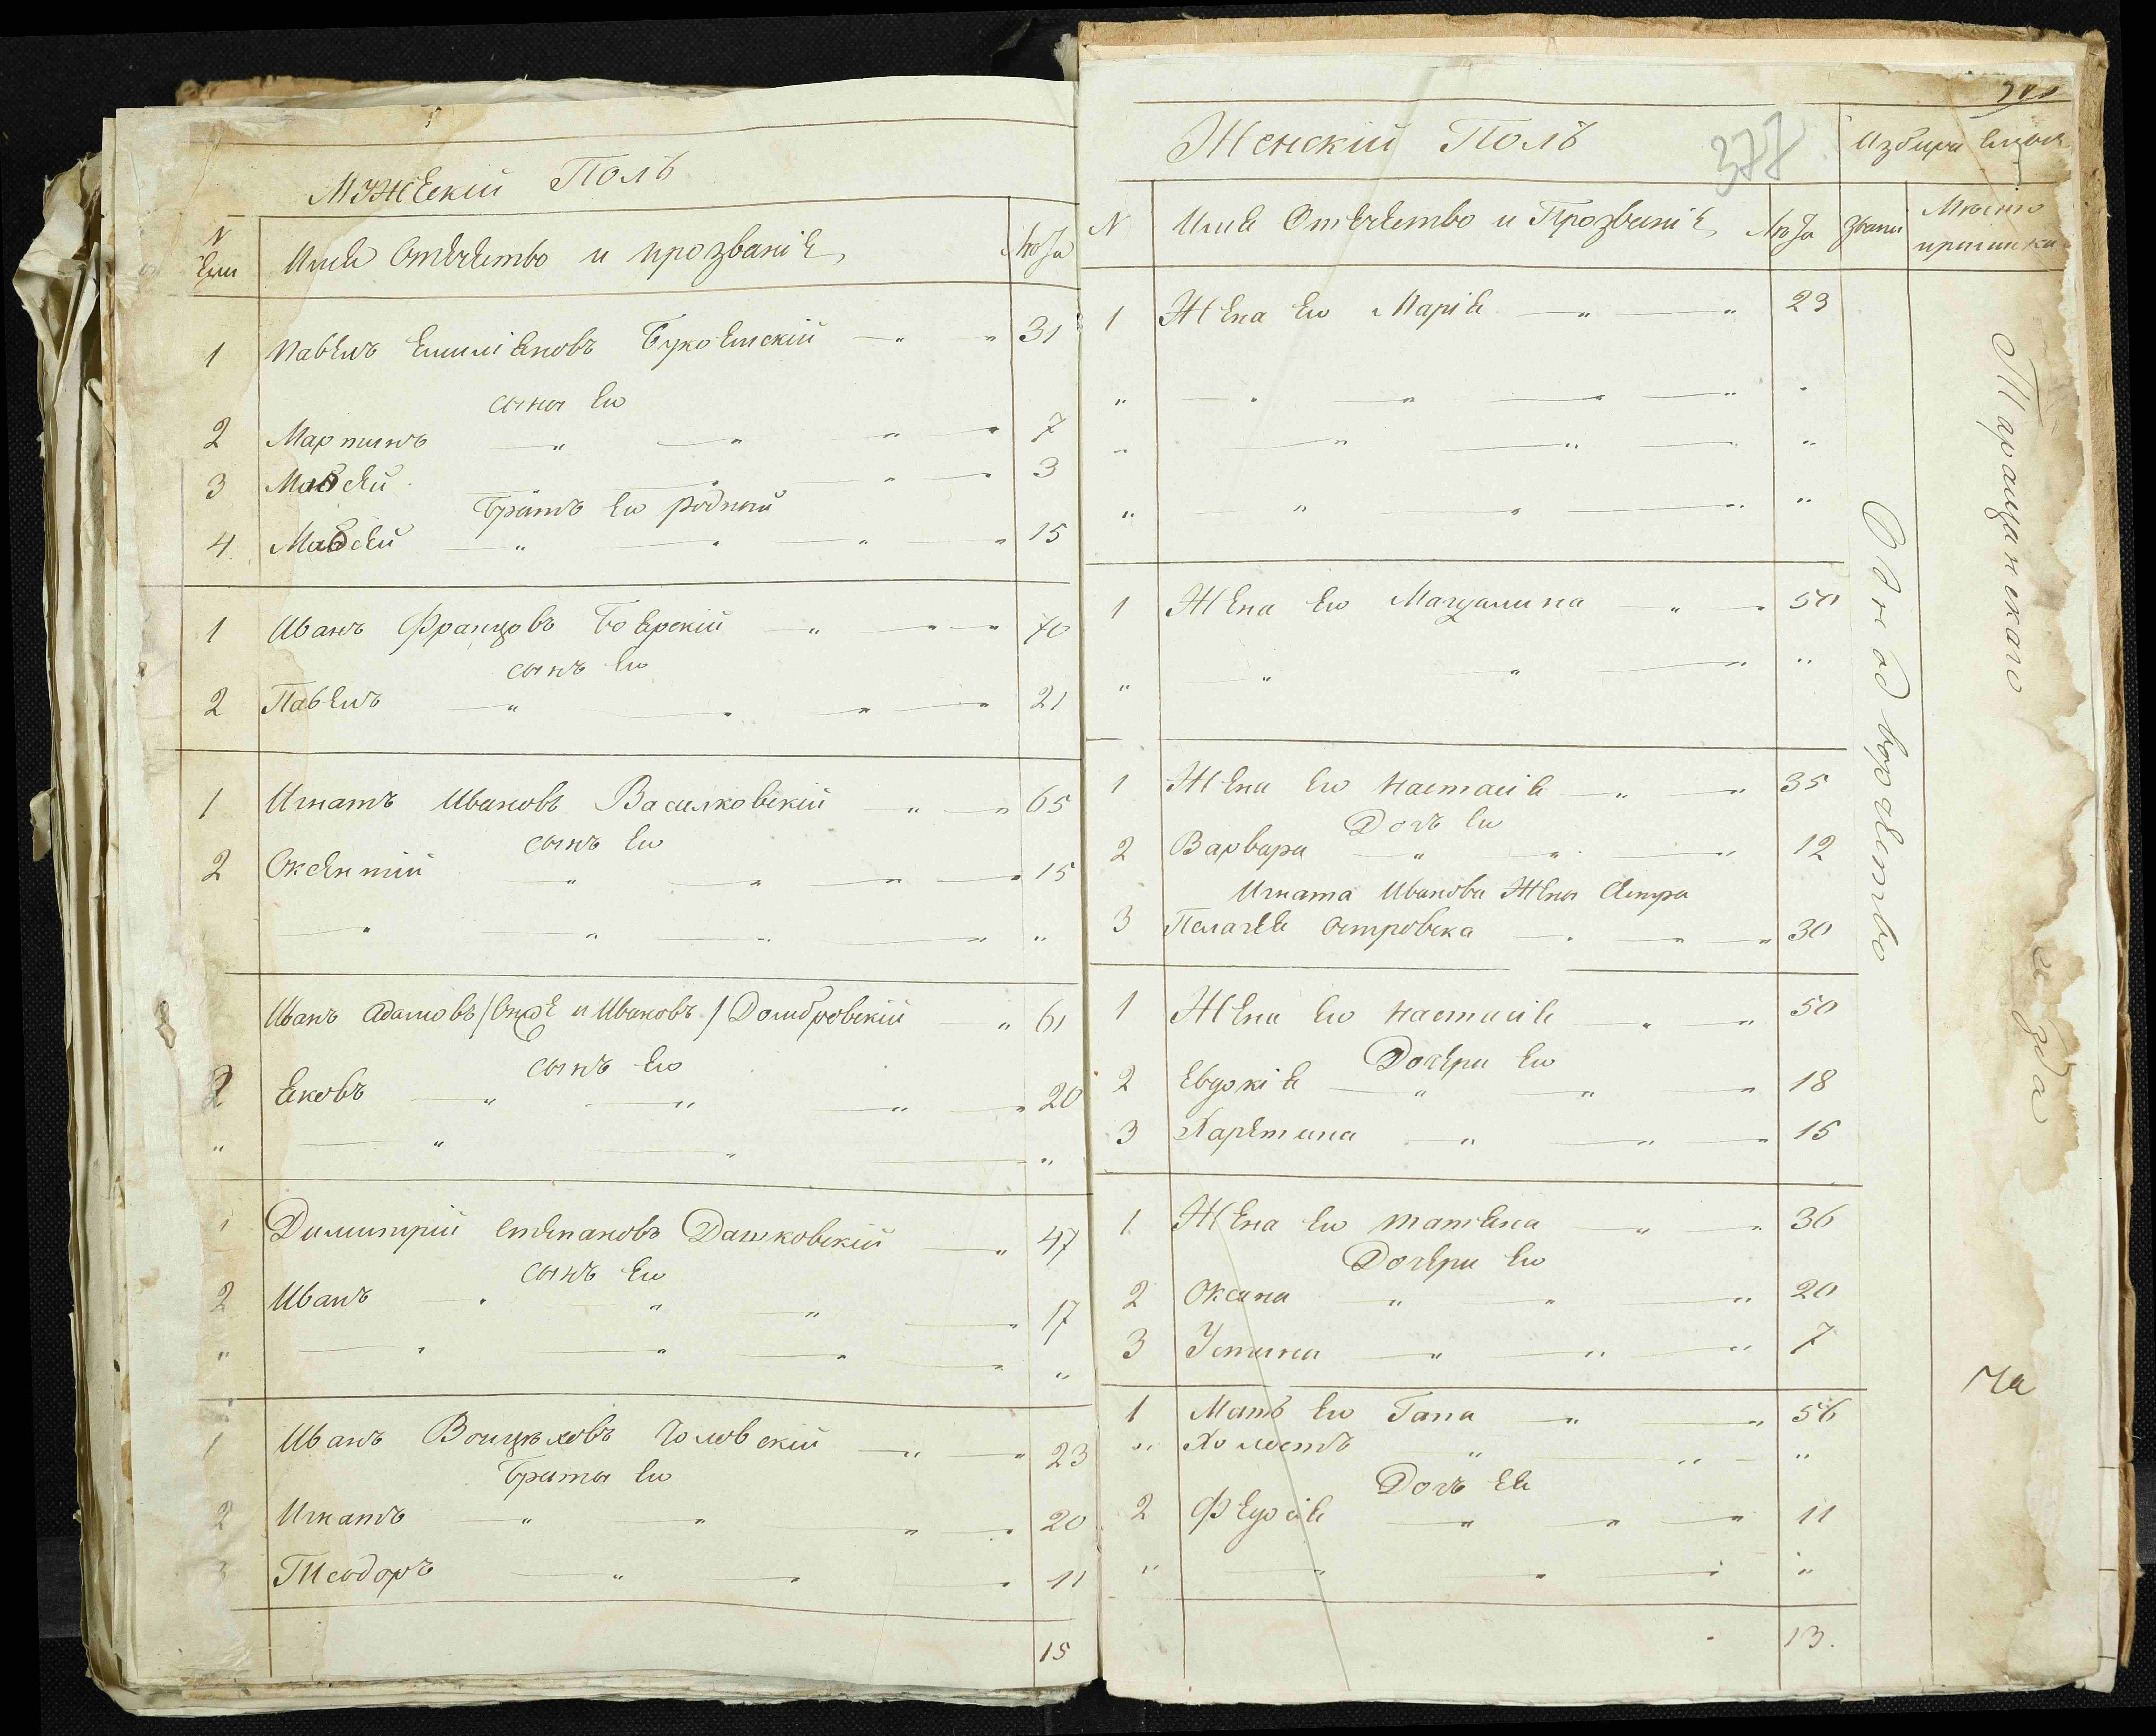 Мужескій Полъ
N
Имя Отечество и прозваніе
Лѣта
1 Павелъ Емиліановъ Букоемскій 31
сыны его
2 Мартинъ 7
3 Маѳей 3
братъ его родный
4 Маѳей 15
1 Иванъ Францовъ Боярскій 70
сынъ его
2 Павелъ 21
1 Игнатъ Ивановъ Василковскій 65
сынъ его
2 Оксентій 15
Иванъ Адамовъ / Онже и Ивановъ / Домбровскій 61
сынъ его
2 Яковъ 20
1 Димитрій степановъ Дашковскій 47
сынъ его
2 Иванъ 17
1 Иванъ Воицѣховъ Головскій 23
браты его
2 Игнатъ 20
3 Тіодоръ 11
15
Женскій Полъ
377
N
Имя Отечество и Прозваніе
Лѣта
Званія
Мѣсто
1 Жена его Марія 29
1 Жена его Магдалина 50
1 Жена его настасія 35
Дочь его
2 Варвара 12
Игната Иванова Жены сестра
3 Пелагея островска 30
1 Жена его настасія 50
Дочери его
2 Евдокія 18
3 Харетина 15
1 Жена его татяна 36
Дочери его
2 Оксана 20
3 Устина 7
1 Мать его Гапа 56
Холостъ
Дочь ея
2 Федосія 11
13.
Однодворчество
Таращанскаго
уезда